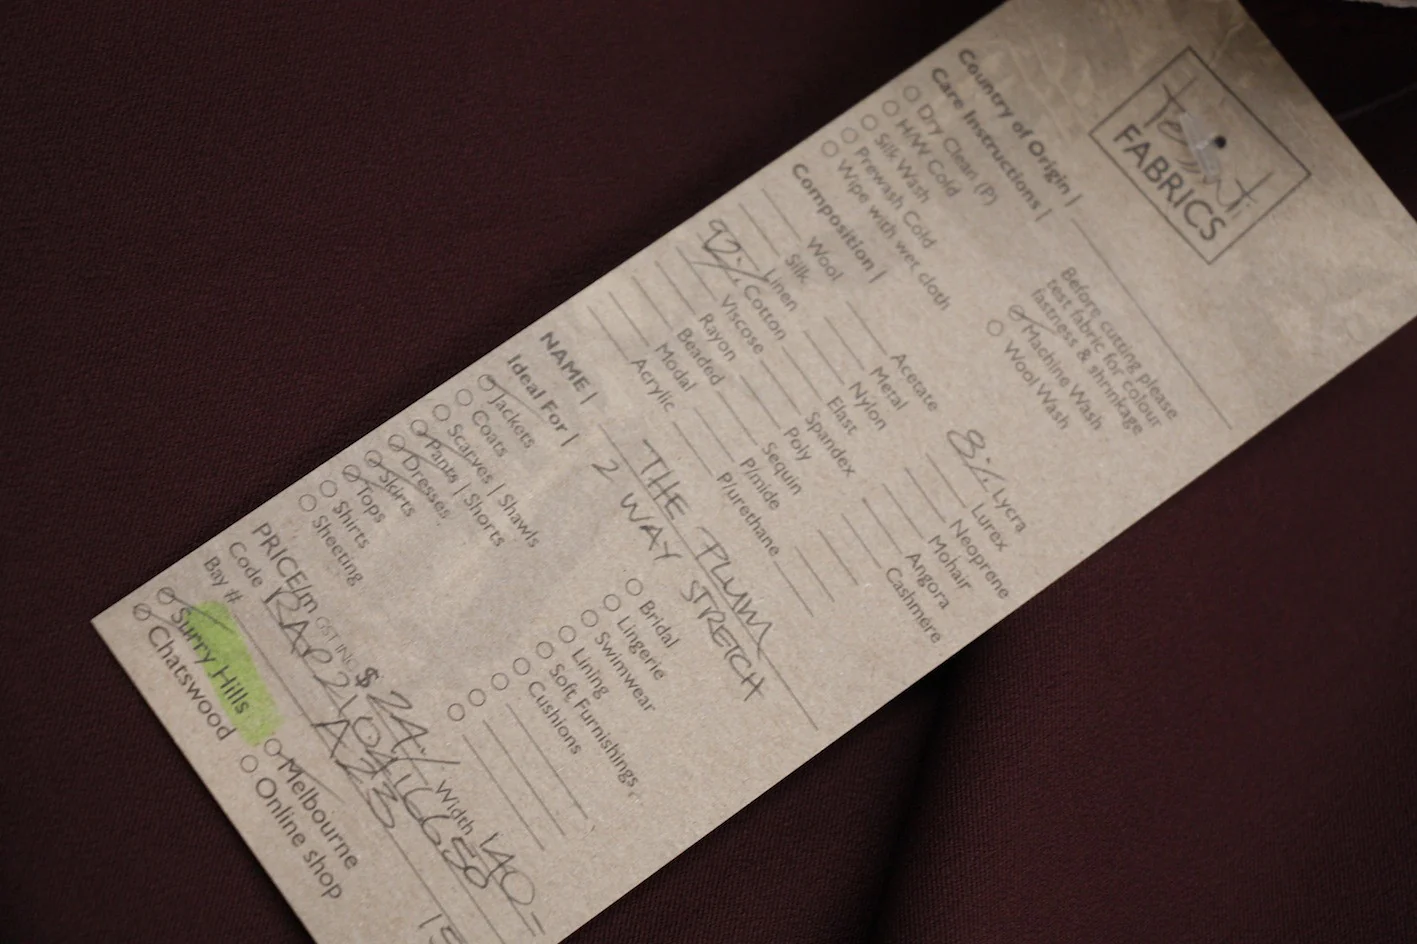 FABRICS
Country of Origin |
Care Instructions |
Before cutting please
test fabric for colour
fastness & shrinkage
Dry Clean (P)
H/W Cold
Silk Wash
Prewash Cold
Wipe with wet cloth
Machine Wash
Wool Wash
Composition |
Wool
Silk
Linen
92% Cotton
Viscose
Rayon
Beaded
Modal
Acrylic
Acetate
Metal
Nylon
Elast
Spandex
Poly
Sequin
P/mide
P/urethane
8% Lycra
Lurex
Neoprene
Mohair
Angora
Cashmere
NAME | THE PLUM
2 WAY STRETCH
Ideal For |
Jackets
Coats
Scarves | Shawls
Pants | Shorts
Dresses
Skirts
Tops
Shirts
Sheeting
Bridal
Lingerie
Swimwear
Lining
Soft Furnishings
Cushions
PRICE/m GST INC $ 24./ Width 140-
Code
Bay # A23
Surry Hills
Chatswood
Melbourne
Online shop